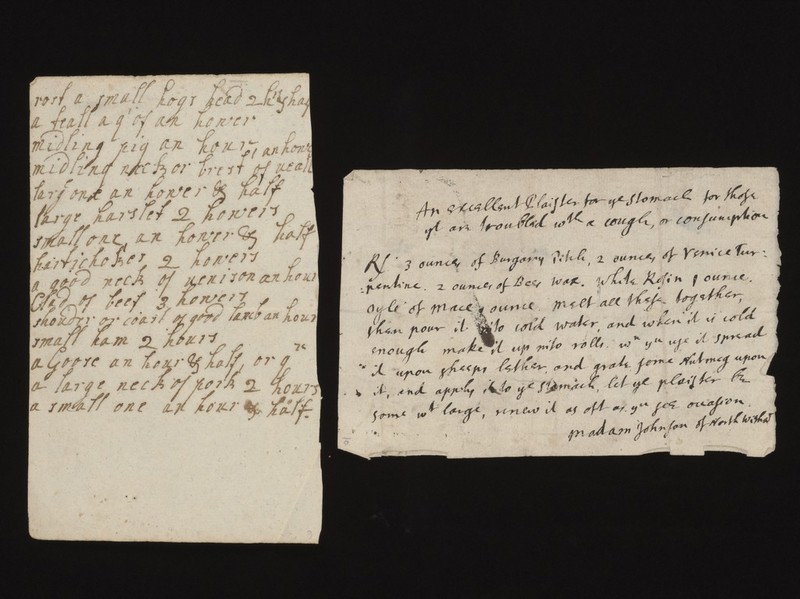 rost a small hogs head 2
a feall a qr of an hower
midling pig an hour
midling neck or brest of ueall an houre
larg one an hower & half
large harslet 2 howers
small one an hower & half
hartichokes 2 howers
a good neck of uenison an hour
Clod of beef 3 howers
shoulder or coast of good lamb an hour
small ham 2 hours
a Goose an hour & half or
a large neck of pork 2 hours
a small one an hour & half
An excellent Plaister for ye stomach for those
yt are troubled wth a cough, or consumption
Rx: 3 ounces of Burgany Pitch, 2 ounces of Venice Tur-
-pentine. 2 ounces of Bees wax. White Rosin 1 ounce.
oyle of mace 1 ounce. melt all these together,
then pour it into cold water, and when it is cold
enough make it up into rolls. wn you use it spread
it upon sheeps lether, and grate some Nutmeg upon
it, and apply it to ye stomach, let ye plaister be
some wt large, renew it as oft as you see occasion.
madam Johnson of North